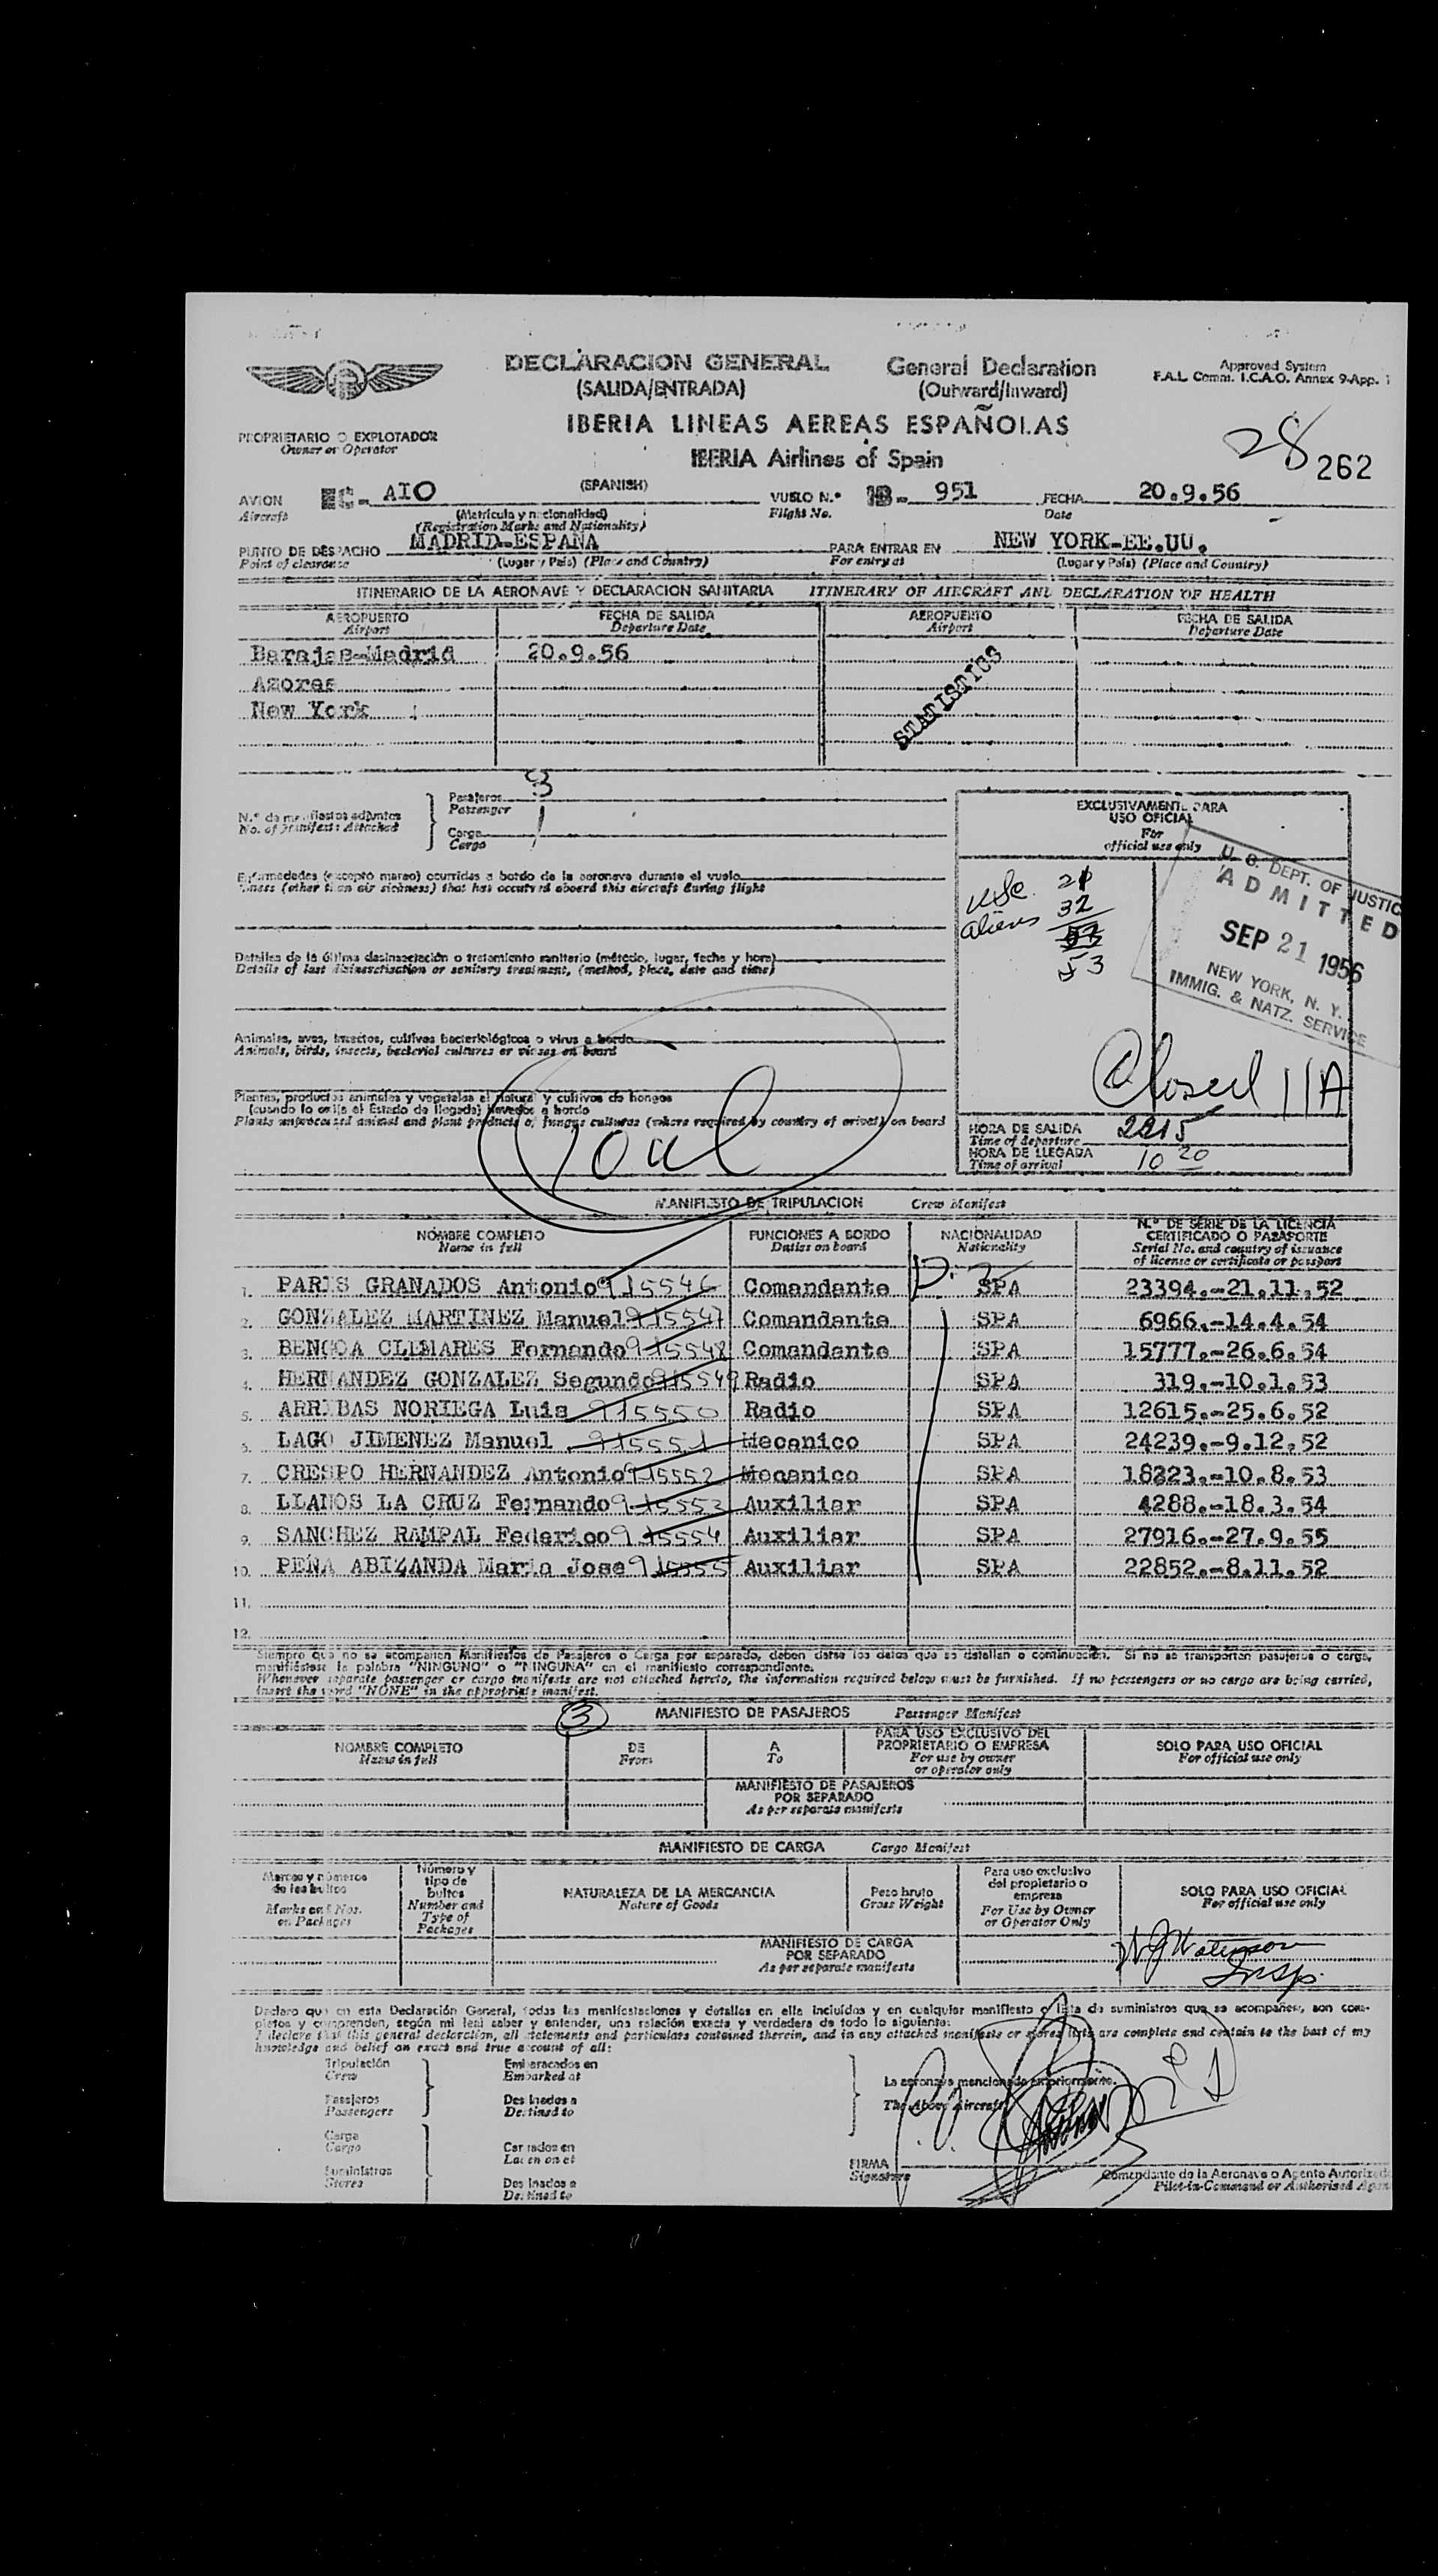 DECLARACION GENERAL General Declaration
(SALIDA/ENTRADA) (Outward/Inward)
Approved System
F.A.L. Comm. I.C.A.O. Annex 9-App. 1
IBERIA LINEAS AEREAS ESPAÑOLAS
IBERIA Airlines of Spain
PROPRIETARIO O EXPLOTADOR
Owner or Operator
28 262
AVION EC- AIO (SPANISH) VUELO N.º IB- 951 FECHA 20.9.56
Aircraft (Matrícula y nacionalidad) Flight No. Date
(Registration Marks and Nationality)
PUNTO DE DESPACHO MADRID-ESPAÑA PARA ENTRAR EN NEW YORK-EE.UU.
Point of clearance (Lugar y País) (Place and Country) For entry at (Lugar y País) (Place and Country)
ITINERARIO DE LA AERONAVE Y DECLARACION SANITARIA ITINERARY OF AIRCRAFT AND DECLARATION OF HEALTH
AEROPUERTO FECHA DE SALIDA AEROPUERTO FECHA DE SALIDA
Airport Departure Date Airport Departure Date
Barajas-Madrid 20.9.56
Azores
New York
STATISTICS
N.º de manifiestos adjuntos
No. of Manifests Attached
Pasajeros 3
Passenger
Carga 1
Cargo
EXCLUSIVAMENTE PARA
USO OFICIAL
For
official use only
U. S. DEPT. OF JUSTIC
ADMITTED
SEP 21 1956
NEW YORK, N. Y.
IMMIG. & NATZ. SERVICE
USC 21
aliens 32
53
Closed 11A
Enfermedades (excepto mareo) ocurridas a bordo de la aeronave durante el vuelo
Illness (other than air sickness) that has occurred aboard this aircraft during flight
Detalles de la última desinsectación o tratamiento sanitario (método, lugar, fecha y hora)
Details of last disinsectisation or sanitary treatment, (method, place, date and time)
Animales, aves, insectos, cultivos bacteriológicos o virus a bordo
Animals, birds, insects, bacterial cultures or viruses on board
Plantas, productos animales y vegetales al natural y cultivos de hongos
(cuando lo exija el Estado de llegada) llevados a bordo
Plants unprocessed animal and plant products or fungus cultures (where required by country of arrival) on board
HORA DE SALIDA 2215
Time of departure
HORA DE LLEGADA 10 20
Time of arrival
MANIFIESTO DE TRIPULACION Crew Manifest
NOMBRE COMPLETO FUNCIONES A BORDO NACIONALIDAD N.º DE SERIE DE LA LICENCIA
CERTIFICADO O PASAPORTE
Name in full Duties on board Nationality Serial No. and country of issuance
of license or certificate or passport
1. PARIS GRANADOS Antonio 915546 Comandante SPA 23394.-21.11.52
2. GONZALEZ MARTINEZ Manuel 915547 Comandante SPA 6966.-14.4.54
3. BENGOA CLEMARES Fernando 915548 Comandante SPA 15777.-26.6.54
4. HERNANDEZ GONZALEZ Segundo 915549 Radio SPA 319.-10.1.53
5. ARRIBAS NORIEGA Luis 915550 Radio SPA 12615.-25.6.52
6. LAGO JIMENEZ Manuel 915551 Mecanico SPA 24239.-9.12.52
7. CRESPO HERNANDEZ Antonio 915552 Mecanico SPA 18223.-10.8.53
8. LLANOS LA CRUZ Fernando 915553 Auxiliar SPA 4288.-18.3.54
9. SANCHEZ RAMPAL Federico 915554 Auxiliar SPA 27916.-27.9.55
10. PEÑA ABIZANDA Maria Jose 915555 Auxiliar SPA 22852.-8.11.52
11.
12.
Siempre que no se acompañen Manifiestos de Pasajeros o Carga por separado, deben darse los datos que se detallan a continuación. Si no se transportan pasajeros o carga,
manifiéstese la palabra "NINGUNO" o "NINGUNA" en el manifiesto correspondiente.
Whenever separate passenger or cargo manifests are not attached hereto, the information required below must be furnished. If no passengers or no cargo are being carried,
insert the word "NONE" in the appropriate manifest.
3 MANIFIESTO DE PASAJEROS Passenger Manifest
NOMBRE COMPLETO DE A PARA USO EXCLUSIVO DEL
PROPRIETARIO O EMPRESA SOLO PARA USO OFICIAL
Name in full From To For use by owner
or operator only For official use only
MANIFIESTO DE PASAJEROS
POR SEPARADO
As per separate manifests
MANIFIESTO DE CARGA Cargo Manifest
Marcas y números
de los bultos
Marks and Nos.
on Packages
Número y
tipo de
bultos
Number and
Type of
Packages
NATURALEZA DE LA MERCANCIA
Nature of Goods
Peso bruto
Gross Weight
Para uso exclusivo
del propietario o
empresa
For Use by Owner
or Operator Only
SOLO PARA USO OFICIAL
For official use only
MANIFIESTO DE CARGA
POR SEPARADO
As per separate manifests
Insp.
Declaro que en esta Declaración General, todas las manifestaciones y detalles en ella incluídos y en cualquier manifiesto o lista de suministros que se acompañen, son com-
pletos y comprenden, según mi leal saber y entender, una relación exacta y verdadera de todo lo siguiente:
I declare that this general declaration, all statements and particulars contained therein, and in any attached manifests or stores lists are complete and contain to the best of my
knowledge and belief an exact and true account of all:
Tripulación
Crew
Pasajeros
Passengers
Embarcados en
Embarked at
Destinados a
Destined to
La aeronave mencionada anteriormente.
The Above Aircraft
Carga
Cargo
Suministros
Stores
Cargados en
Laden on at
Destinados a
Destined to
FIRMA
Signature
Comandante de la Aeronave o Agente Autorizado
Pilot-in-Command or Authorised Agent